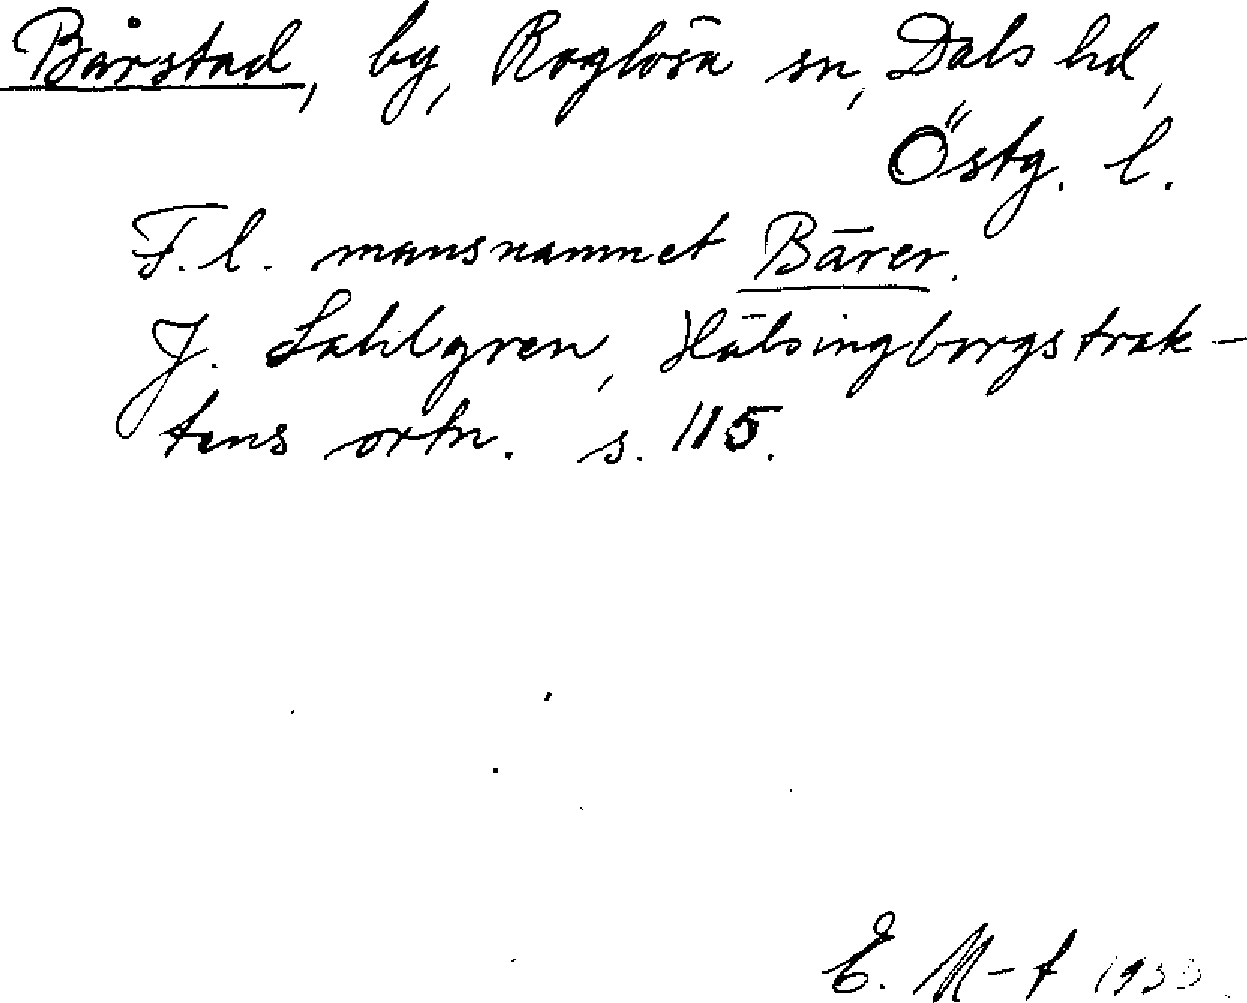 Bårstad, by, Roglösa sn, Dals hd,
Östg. l.
F.l. mansnamnet Bārer.
J. Sahlgren, Hälsingborgstrak-
tens ortn. s. 115.
E. M-t